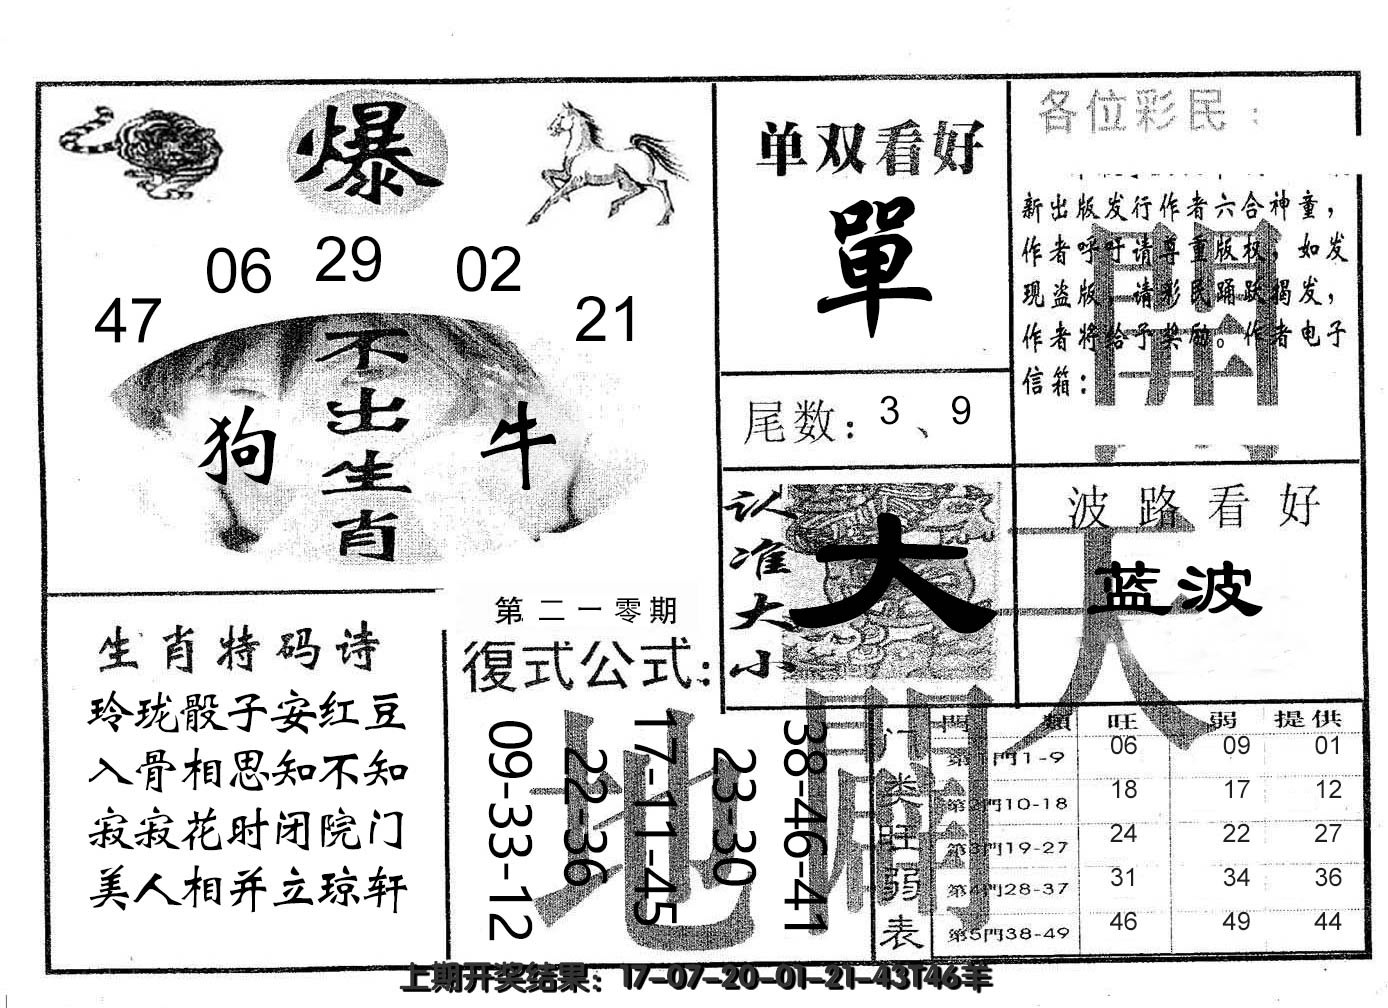 爆
47 06 29 02 21
不出生肖
狗 牛
单双看好
單
尾数：3、9
认准大小
大
各位彩民：
新出版发行作者六合神童，
作者呼吁请尊重版权，如发
现盗版，请彩民踊跃揭发，
作者将给予奖励。作者电子
信箱：
波路看好
蓝波
天地開
生肖特码诗
玲珑骰子安红豆
入骨相思知不知
寂寂花时闭院门
美人相并立琼轩
第二一零期
復式公式：
09-33-12
22-36
17-11-45
23-30
38-46-41
门类旺弱表
門類 旺 弱 提供
第1門1-9 06 09 01
第2門10-18 18 17 12
第3門19-27 24 22 27
第4門28-37 31 34 36
第5門38-49 46 49 44
上期开奖结果：17-07-20-01-21-43T46羊